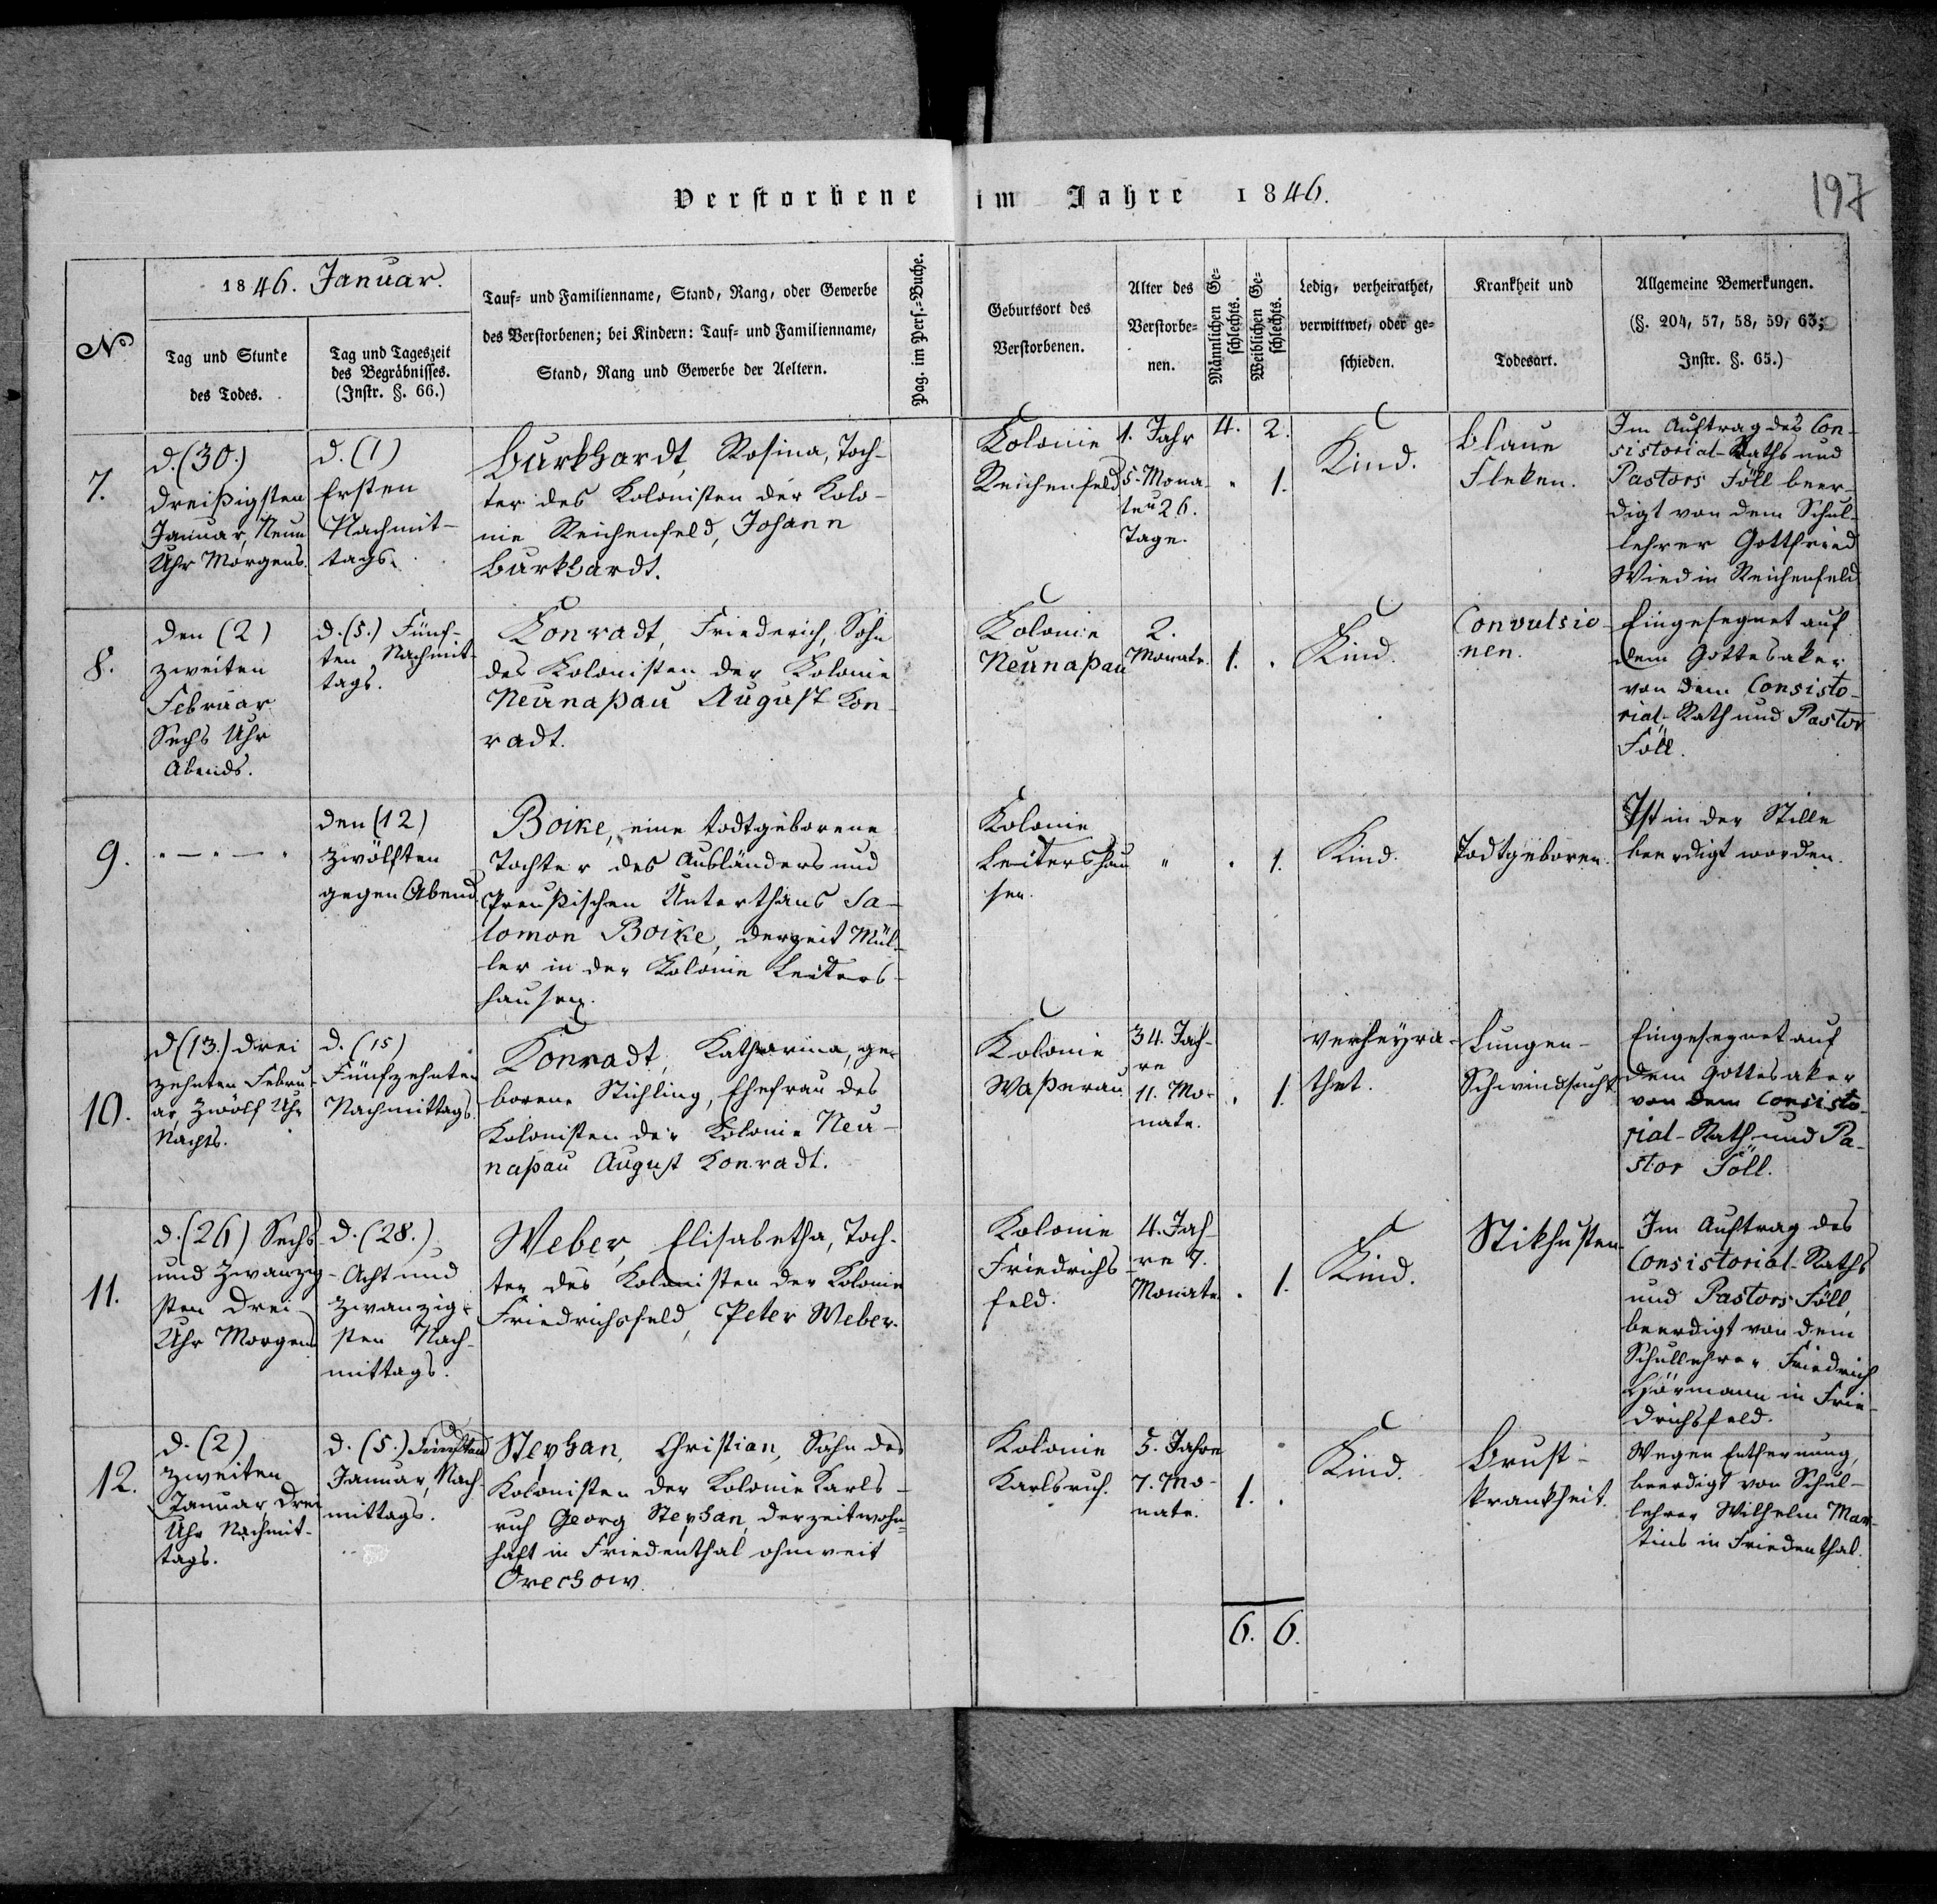 Verstorbene im Jahre 1846.
197
No
1846. Januar.
Tag und Stunde
des Todes.
Tag und Tageszeit
des Begräbnisses.
(Instr. §. 66.)
Tauf- und Familienname, Stand, Rang, oder Gewerbe
des Verstorbenen; bei Kindern: Tauf- und Familienname,
Stand, Rang und Gewerbe der Aeltern.
Pag. im Pers.-Buche.
Geburtsort des
Verstorbenen.
Alter des
Verstorbe-
nen.
Männlichen Ge-
schlechts.
Weiblichen Ge-
schlechts.
Ledig, verheirathet,
verwittwet, oder ge-
schieden.
Krankheit und
Todesart.
Allgemeine Bemerkungen.
(§. 204, 57, 58, 59, 63;
Instr. §. 65.)
7.
d. (30.)
dreißigsten
Januar, Neun
Uhr Morgens.
d. (1)
Ersten
Nachmit-
tags.
Burkhardt, Rosina, Toch-
ter des Kolonisten der Kolo-
nie Reichenfeld, Johann
Burkhardt.
Kolonie
Reichenfeld
1. Jahr
5. Mona-
te u 26.
Tage.
4. 2.
" 1.
Kind.
Blaue
Fleken.
Im Auftrag des Con-
sistorial-Raths und
Pastors Föll beer-
digt von dem Schul-
lehrer Gottfried
Wied in Reichenfeld
8.
den (2)
zweiten
Februar
Sechs Uhr
Abends.
d. (5.) Fünf-
ten Nachmit-
tags.
Konradt, Friederich, Sohn
des Kolonisten der Kolonie
Neunaßau August Kon-
radt.
Kolonie
Neunaßau
2.
Monate.
1. .
Kind.
Convulsio-
nen.
Eingesegnet auf
dem Gottesaker
von dem Consisto-
rial-Rath und Pastor
Föll.
9.
. — . — .
den (12)
zwölften
gegen Abend
Boike, eine todtgeborene
Tochter des Ausländers und
Preußischen Unterthans Sa-
lomon Boike, derzeit Mül-
ler in der Kolonie Leiters-
hausen.
Kolonie
Leitershau
sen.
"
. 1.
Kind.
Todtgeboren.
Ist in der Stille
beerdigt worden.
10.
d (13.) drei
zehnten Febru-
ar, Zwölf Uhr
Nachts.
d. (15)
Fünfzehnten
Nachmittags.
Konradt, Katharina, ge-
borene Stichling, Ehefrau des
Kolonisten der Kolonie Neu-
naßau August Konradt.
Kolonie
Waßerau.
34. Jah-
re
11. Mo-
nate.
. 1.
verheyra-
thet.
Lungen-
Schwindsucht
Eingesegnet auf
dem Gottesaker
von dem Consisto-
rial-Rath und Pa-
stor Föll.
11.
d. (26) Sechs
und zwanzig-
sten Drei
Uhr Morgens
d. (28.)
Acht und
zwanzig-
sten Nach-
mittags.
Weber, Elisabetha, Toch-
ter des Kolonisten der Kolonie
Friedrichsfeld, Peter Weber.
Kolonie
Friedrichs
feld.
4. Jah-
re 7.
Monate.
. 1.
Kind.
Stikhusten
Im Auftrag des
Consistorial-Raths
und Pastors Föll,
beerdigt von dem
Schullehrer Friedrich
in Frie-
drichsfeld.
12.
d. (2)
zweiten
Januar, Drei
Uhr Nachmit-
tags.
d. (5.) Fünften
Januar, Nach-
mittags.
Stephan, Christian, Sohn des
Kolonisten der Kolonie Karls-
ruh Georg Stephan, derzeit wohn-
haft in Friedenthal ohnweit
Orechow.
Kolonie
Karlsruh.
5. Jahre
7. Mo-
nate.
1. .
Kind.
Brust-
krankheit.
Wegen Entfernung,
beerdigt von Schul-
lehrer Wilhelm Mar-
tins in Friedenthal.
6. 6.